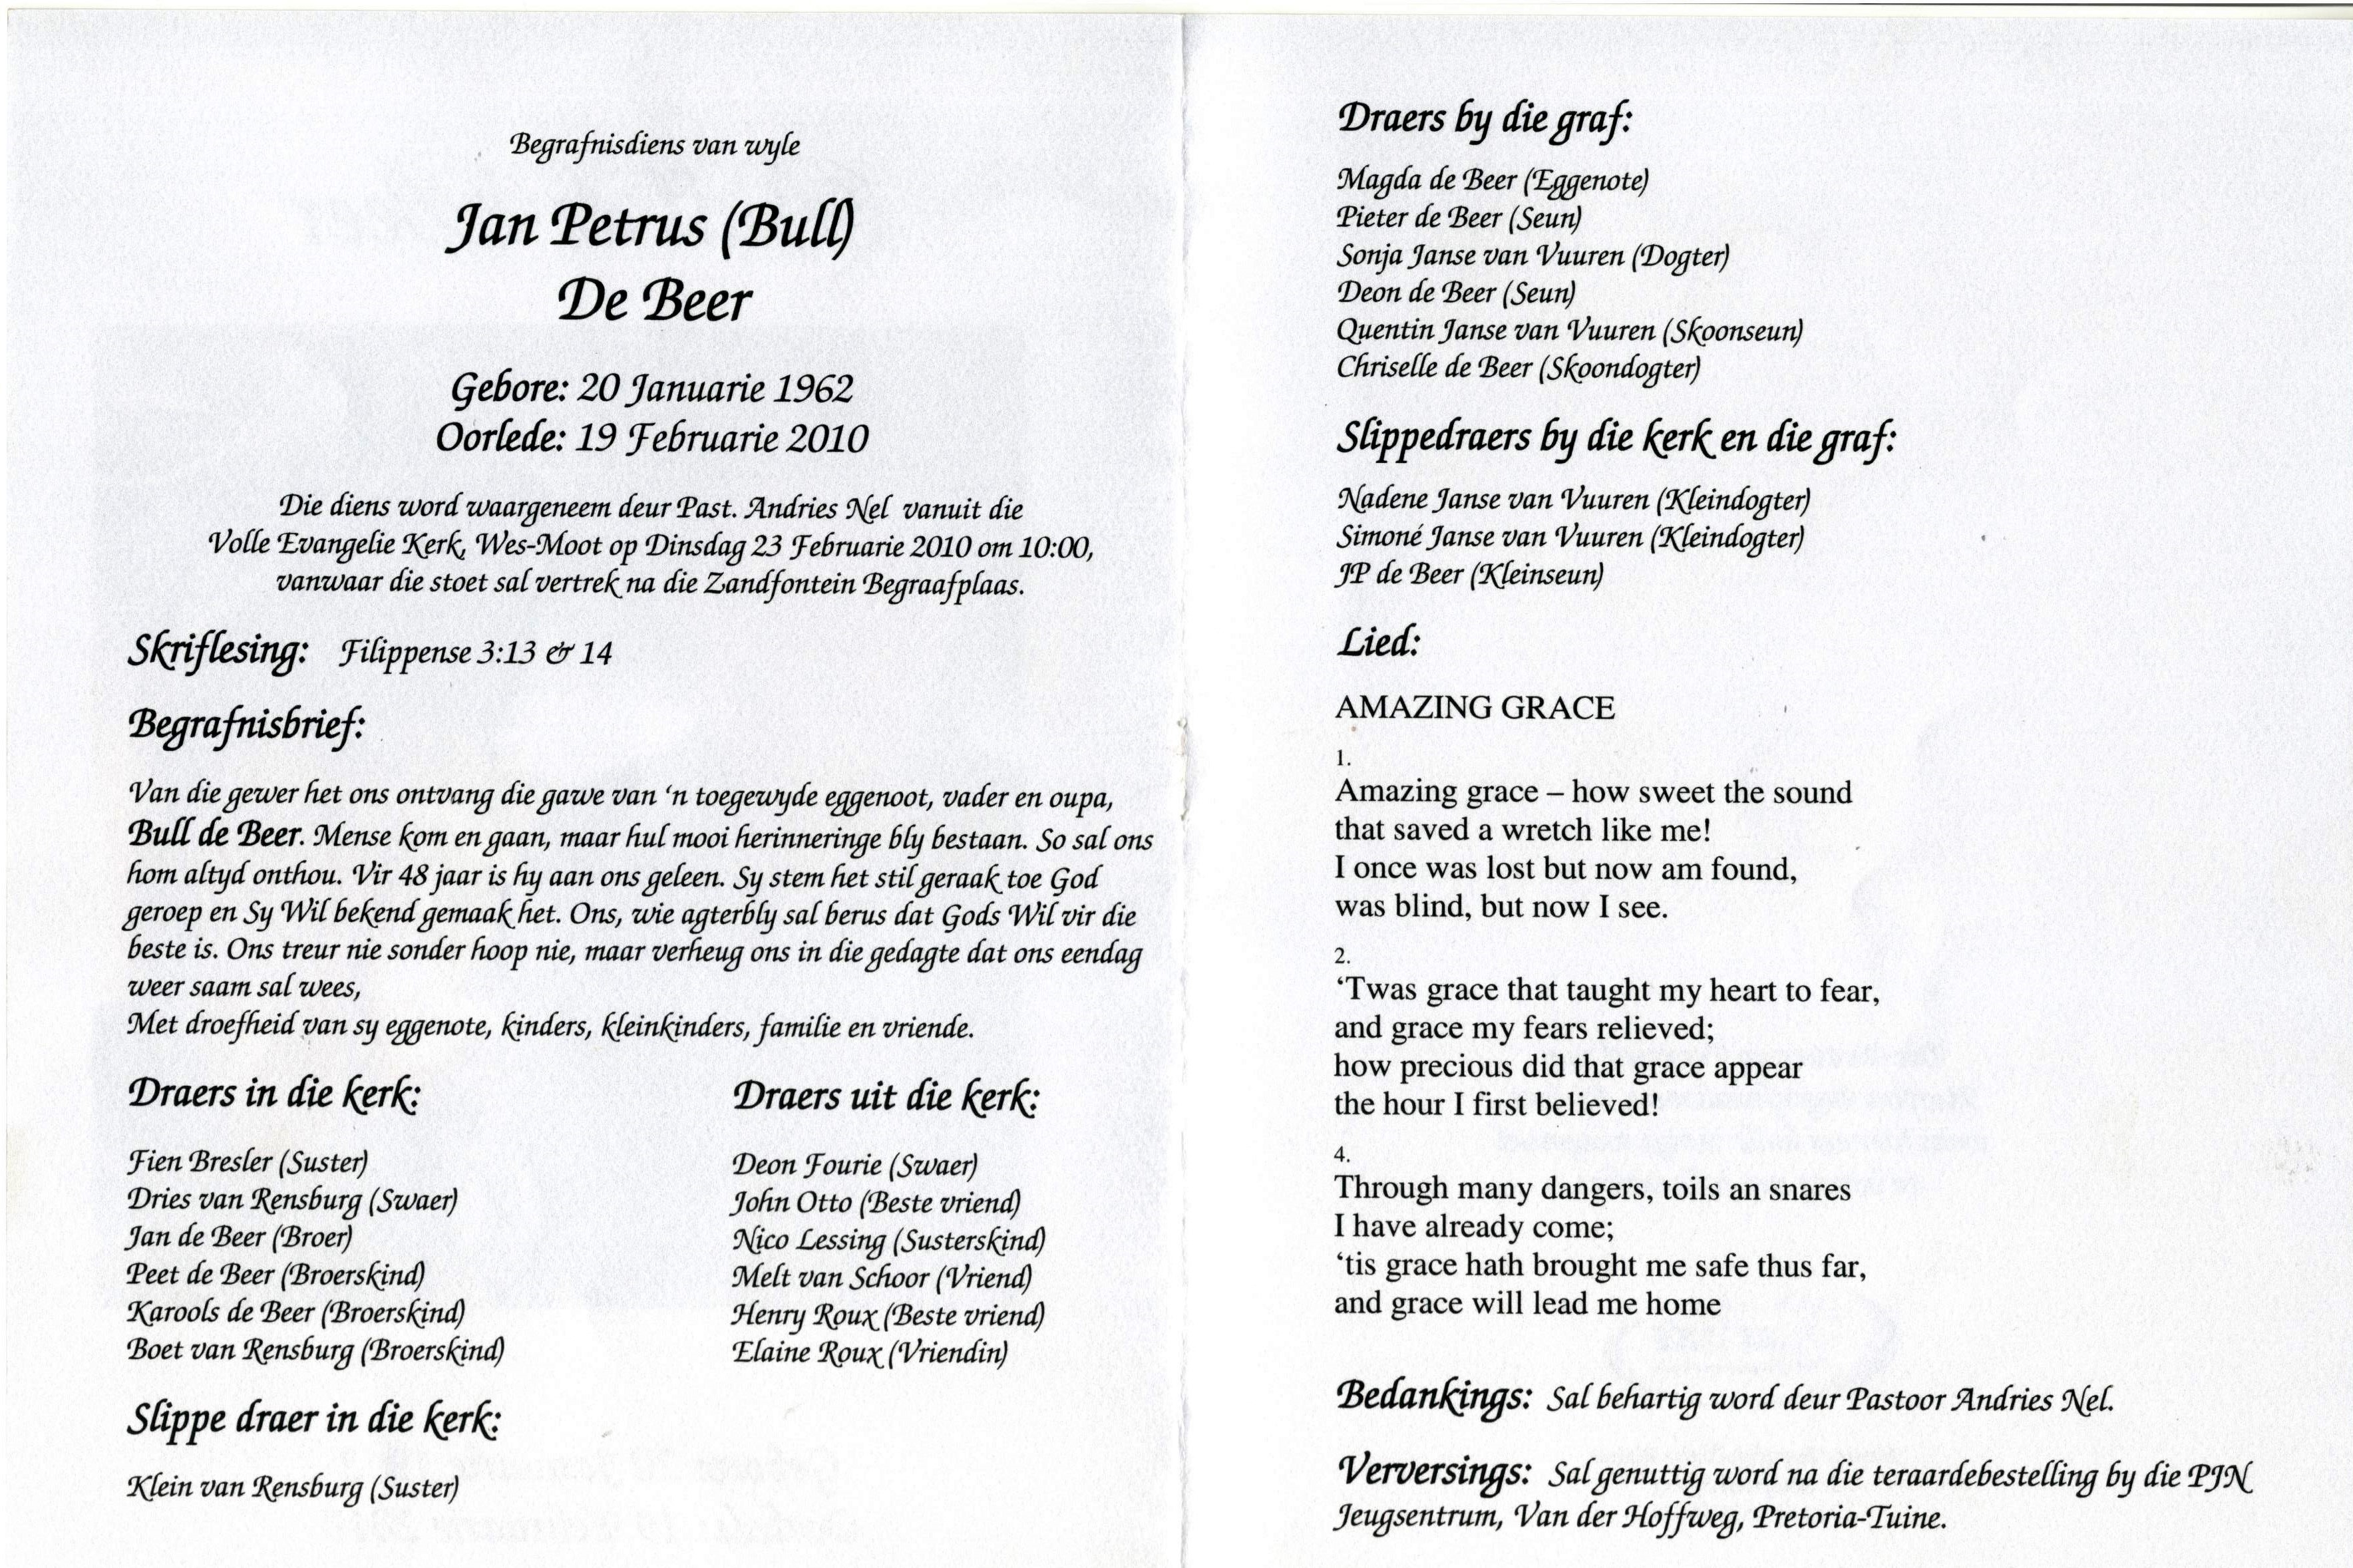 Begrafnisdiens van wyle
Jan Petrus (Bull)
De Beer
Gebore: 20 Januarie 1962
Oorlede: 19 Februarie 2010
Die diens word waargeneem deur Past. Andries Nel vanuit die
Volle Evangelie Kerk, Wes-Moot op Dinsdag 23 Februarie 2010 om 10:00,
vanwaar die stoet sal vertrek na die Zandfontein Begraafplaas.
Skriflesing: Filippense 3:13 & 14
Begrafnisbrief:
Van die gewer het ons ontvang die gawe van ‘n toegewyde eggenoot, vader en oupa,
Bull de Beer. Mense kom en gaan, maar hul mooi herinneringe bly bestaan. So sal ons
hom altyd onthou. Vir 48 jaar is hy aan ons geleen. Sy stem het stil geraak toe God
geroep en Sy Wil bekend gemaak het. Ons, wie agterbly sal berus dat Gods Wil vir die
beste is. Ons treur nie sonder hoop nie, maar verheug ons in die gedagte dat ons eendag
weer saam sal wees,
Met droefheid van sy eggenote, kinders, kleinkinders, familie en vriende.
Draers in die kerk:
Fien Bresler (Suster)
Dries van Rensburg (Swaer)
Jan de Beer (Broer)
Peet de Beer (Broerskind)
Karools de Beer (Broerskind)
Boet van Rensburg (Broerskind)
Draers uit die kerk:
Deon Fourie (Swaer)
John Otto (Beste vriend)
Nico Lessing (Susterskind)
Melt van Schoor (Vriend)
Henry Roux (Beste vriend)
Elaine Roux (Vriendin)
Slippe draer in die kerk:
Klein van Rensburg (Suster)
Draers by die graf:
Magda de Beer (Eggenote)
Pieter de Beer (Seun)
Sonja Janse van Vuuren (Dogter)
Deon de Beer (Seun)
Quentin Janse van Vuuren (Skoonseun)
Chriselle de Beer (Skoondogter)
Slippedraers by die kerk en die graf:
Nadene Janse van Vuuren (Kleindogter)
Simoné Janse van Vuuren (Kleindogter)
JP de Beer (Kleinseun)
Lied:
AMAZING GRACE
1.
Amazing grace – how sweet the sound
that saved a wretch like me!
I once was lost but now am found,
was blind, but now I see.
2.
‘Twas grace that taught my heart to fear,
and grace my fears relieved;
how precious did that grace appear
the hour I first believed!
4.
Through many dangers, toils an snares
I have already come;
‘tis grace hath brought me safe thus far,
and grace will lead me home
Bedankings: Sal behartig word deur Pastoor Andries Nel.
Verversings: Sal genuttig word na die teraardebestelling by die PJN
Jeugsentrum, Van der Hoffweg, Pretoria-Tuine.